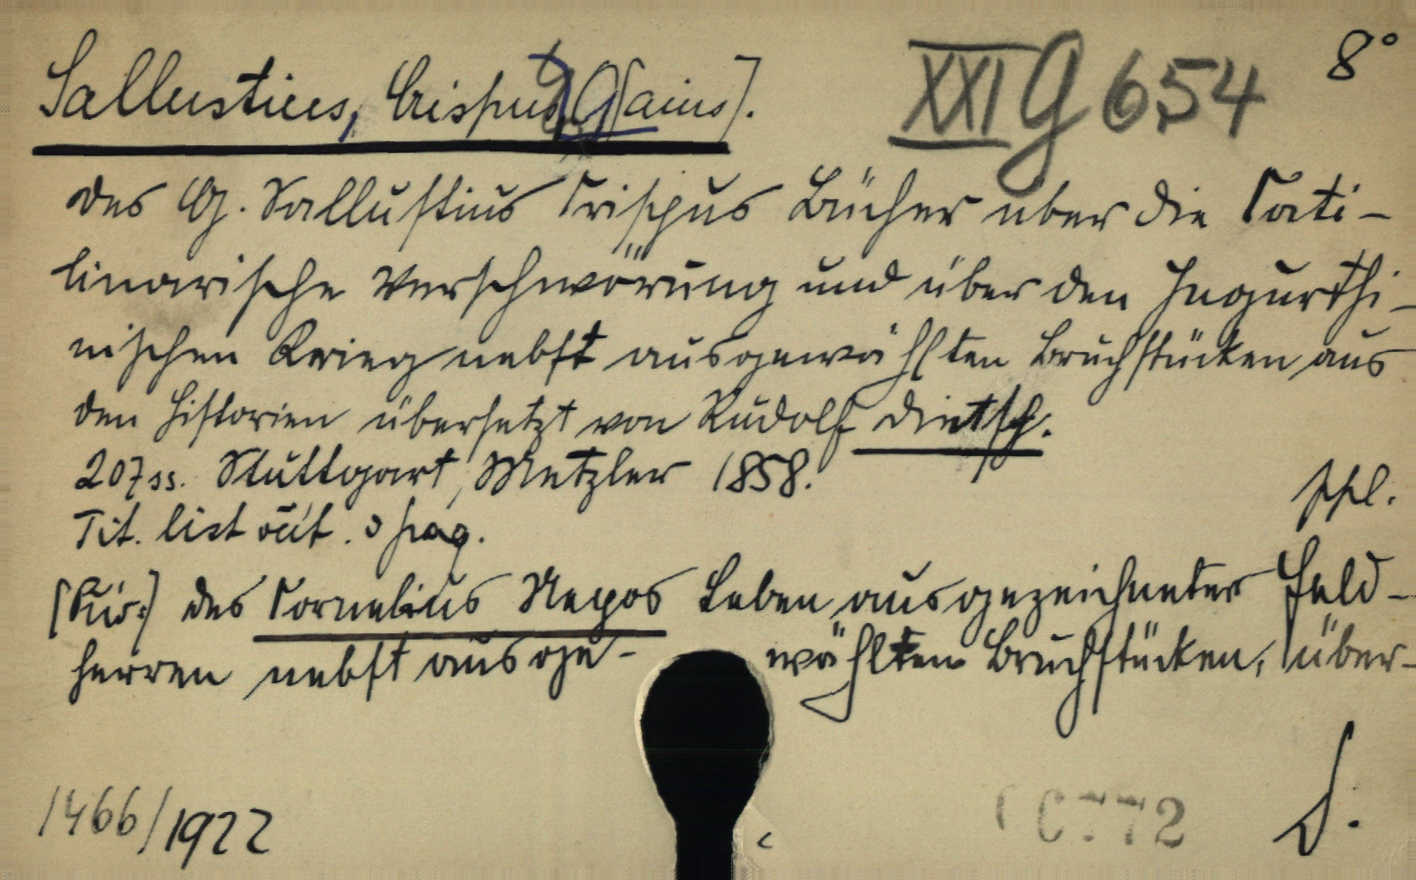 Sallustius, Crispus, G[aius].
XXI G 654
8°
Des G. Sallustius Crispus Bücher über die Cati-
linarische Verschwörung und über den Jugurthi-
nischen Krieg nebst ausgewählten Bruchstücken aus
den Historien übersetzt von Rudolf Dietsch.
207 ss. Stuttgart, Metzler 1858.
Tit. list out. pag.
ppl.
des Cornelius Nepos Leben ausgezeichneter Feld-
herren nebst ausge- wählten Bruchstücken, über-
1466/1922
772